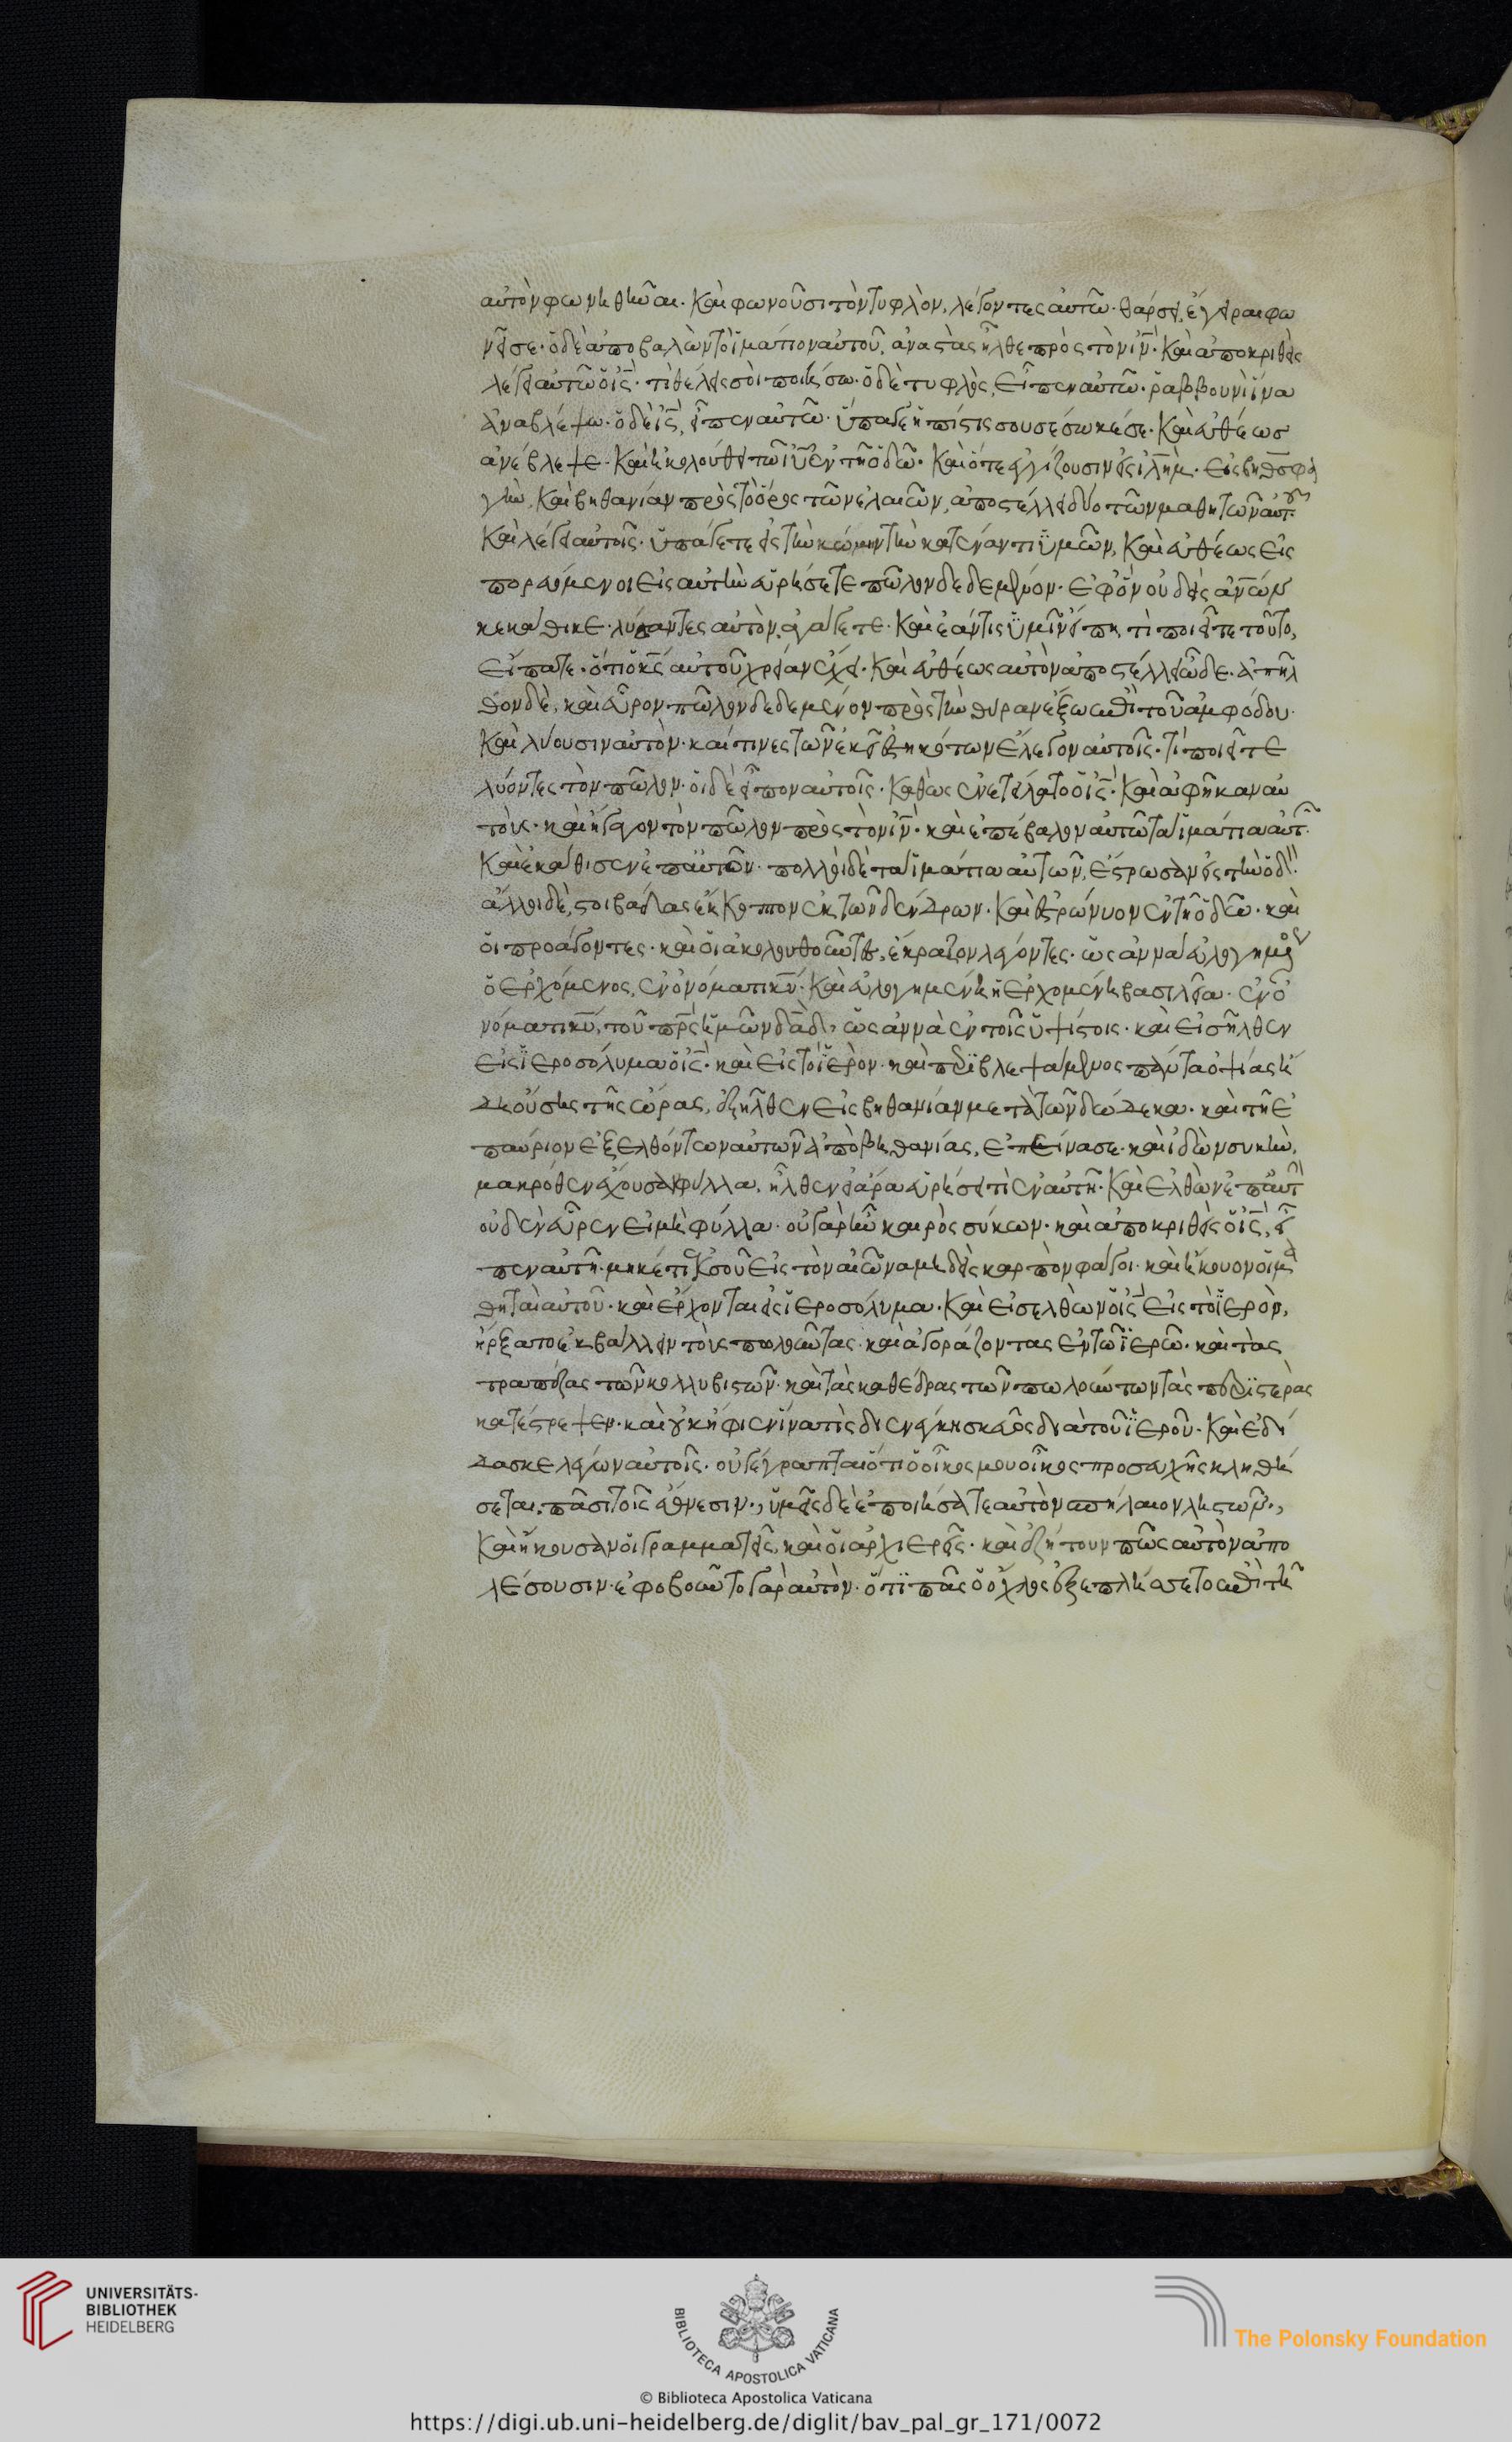 αὐτὸν φωνηθῆναι· Καὶ φωνοῦσι τὸν τυφλὸν, λέγοντες αὐτῶ· θάρσει, ἔγειραι φω
νεῖ σε· ὁ δὲ ἀποβαλὼν τὸ ἱμάτιον αὐτοῦ, ἀναστὰς ἦλθε πρὸς τὸν ιν̅· Καὶ ἀποκριθεὶς
λέγει αὐτῶ ὁ ις̅· τί θέλεις σοὶ ποιήσω· ὁ δὲ τυφλὸς, εἶπεν αὐτῶ· ῥαββουνὶ ἵνα
ἀναβλέψω· ὁ δὲ ις̅, εἶπεν αὐτῶ· ὕπαγε ἡ πίστις σου σέσωκέ σε· Καὶ εὐθέως
ἀνέβλεψε· Καὶ ἠκολούθει τῶ ιυ̅ ἐν τῆ ὁδῶ· Καὶ ὅτε ἐγγίζουσιν εἰς ιλ̅ημ· εἰς βηθσφα
γὴ, Καὶ βηθανίαν πρὸς τὸ ὄρος τῶν ἐλαιῶν, ἀποστέλλει δύο τῶν μαθητῶν αὐτ
Καὶ λέγει αὐτοῖς· ὑπάγετε εἰς τὴν κώμην τὴν κατέναντι ὑμῶν, Καὶ εὐθέως εἰς
πορευόμενοι εἰς αὐτὴν εὑρήσετε πῶλον δεδεμένον· ἐφ ὃν οὐδεὶς ἀν̅ων
κεκάθικε· λύσαντες αὐτὸν, ἀγάγετε· Καὶ ἐάν τις ὑμῖν εἴπη, τί ποιεῖτε τοῦτο,
εἴπατε· ὅτι ὁ κς̅ αὐτοῦ χρείαν ἔχει· Καὶ εὐθέως αὐτὸν ἀποστέλλει ὧδε· ἀπῆλ
θον δὲ, καὶ εὗρον πῶλον δεδεμένον πρὸς τὴν θύραν ἔξω ἐπὶ τοῦ ἀμφόδου·
Καὶ λύουσιν αὐτὸν· καί τινες τῶν ἐκεῖ ἑστηκότων ἔλεγον αὐτοῖς· τί ποιεῖτε
λύοντες τὸν πῶλον· οἱ δὲ εἶπον αὐτοῖς· Καθὼς ἐνετείλατο ὁ ις̅· Καὶ ἀφῆκαν αὐ
τούς· καὶ ἤγαγον τὸν πῶλον πρὸς τὸν ιν̅· καὶ ἐπέβαλον αὐτῶ τὰ ἱμάτια αὐτ
Καὶ ἐκάθισεν ἐπ αὐτῶν· πολλοὶ δὲ τὰ ἱμάτια αὐτῶν, ἔστρωσαν εἰς τὴν ὁδ
ἄλλοι δὲ, στοιβάδας ἔκοπτον ἐκ τῶν δένδρων· Καὶ ἐστρώνυον ἐν τῆ ὁδῶ· καὶ
οἱ προάγοντες· καὶ οἱ ἀκολουθοῦντες, ἔκραζον λέγοντες· ὡς ἀννὰ εὐλογημένος
ὁ ἐρχόμενος, ἐν ὀνόματι κυ̅· Καὶ εὐλογημένη ἡ ἐρχομένη βασιλεία· ἐν ὀ
νόματι κυ̅, τοῦ πρ̅ς ἡμῶν δα̅δ, ὡς ἀννὰ ἐν τοῖς ὑψίστοις· καὶ εἰσῆλθεν
εἰς ἱεροσόλυμα ὁ ις̅· καὶ εἰς τὸ ἱερὸν· καὶ περιβλεψάμενος πάντα ὀψίας ἤ
δη οὔσης τῆς ὥρας, ἐξῆλθεν εἰς βηθανίαν μετὰ τῶν δώδεκα· καὶ τῆ ἐ
παύριον ἐξελθόντων αὐτῶν ἀπὸ βηθανίας, ἐπείνασε· καὶ ἰδὼν συκῆν,
μακρόθεν ἔχουσαν φύλλα, ἦλθεν εἰ ἄρα εὑρήσει τὶ ἐν αὐτῆ· Καὶ ἐλθὼν ἐπ αὐτ
οὐδὲν εὗρεν εἰ μὴ φύλλα· οὐ γὰρ ἦν καιρὸς σύκων· καὶ ἀποκριθεὶς ὁ ις̅, εἶ
πεν αὐτῆ· μηκέτι ἐκ σοῦ εἰς τὸν αἰῶνα μηδεὶς καρπὸν φάγοι· καὶ ἤκουον οἱ μα
θηταὶ αὐτοῦ· καὶ ἔρχονται εἰς ἱεροσόλυμα· Καὶ εἰσελθὼν ὁ ις̅ εἰς τὸ ἱερὸν,
ἤρξατο ἐκβάλλειν τοὺς πωλοῦντας· καὶ ἀγοράζοντας ἐν τῶ ἱερῶ· καὶ τὰς
τραπέζας τῶν κολλυβιστῶν· καὶ τὰς καθέδρας τῶν πωλούντων τὰς περιστερὰς
κατέστρεψεν· καὶ οὐκ ἤφιεν ἵνα τὶς διενέγκη σκεῦος διὰ τοῦ ἱεροῦ· Καὶ ἐδί
δασκε λέγων αὐτοῖς· οὐ γέγραπται ὅτι ὁ οἶκος μου οἶκος προσευχῆς κληθή
σεται, πᾶσι τοῖς ἔθνεσιν·, ὑμεῖς δὲ ἐποιήσατε αὐτὸν σπήλαιον ληστῶν·,
Καὶ ἤκουσαν οἱ γραμματεῖς, καὶ οἱ ἀρχιερεῖς· καὶ ἐζήτουν πῶς αὐτὸν ἀπο
λέσουσιν· ἐφοβοῦντο γὰρ αὐτὸν· ὅτι πᾶς ὁ ὄχλος ἐξεπλήσσετο ἐπὶ τῆ
UNIVERSITÄTS-
BIBLIOTHEK
HEIDELBERG
BIBLIOTECA APOSTOLICA VATICANA
The Polonsky Foundation
© Biblioteca Apostolica Vaticana
https://digi.ub.uni-heidelberg.de/diglit/bav_pal_gr_171/0072